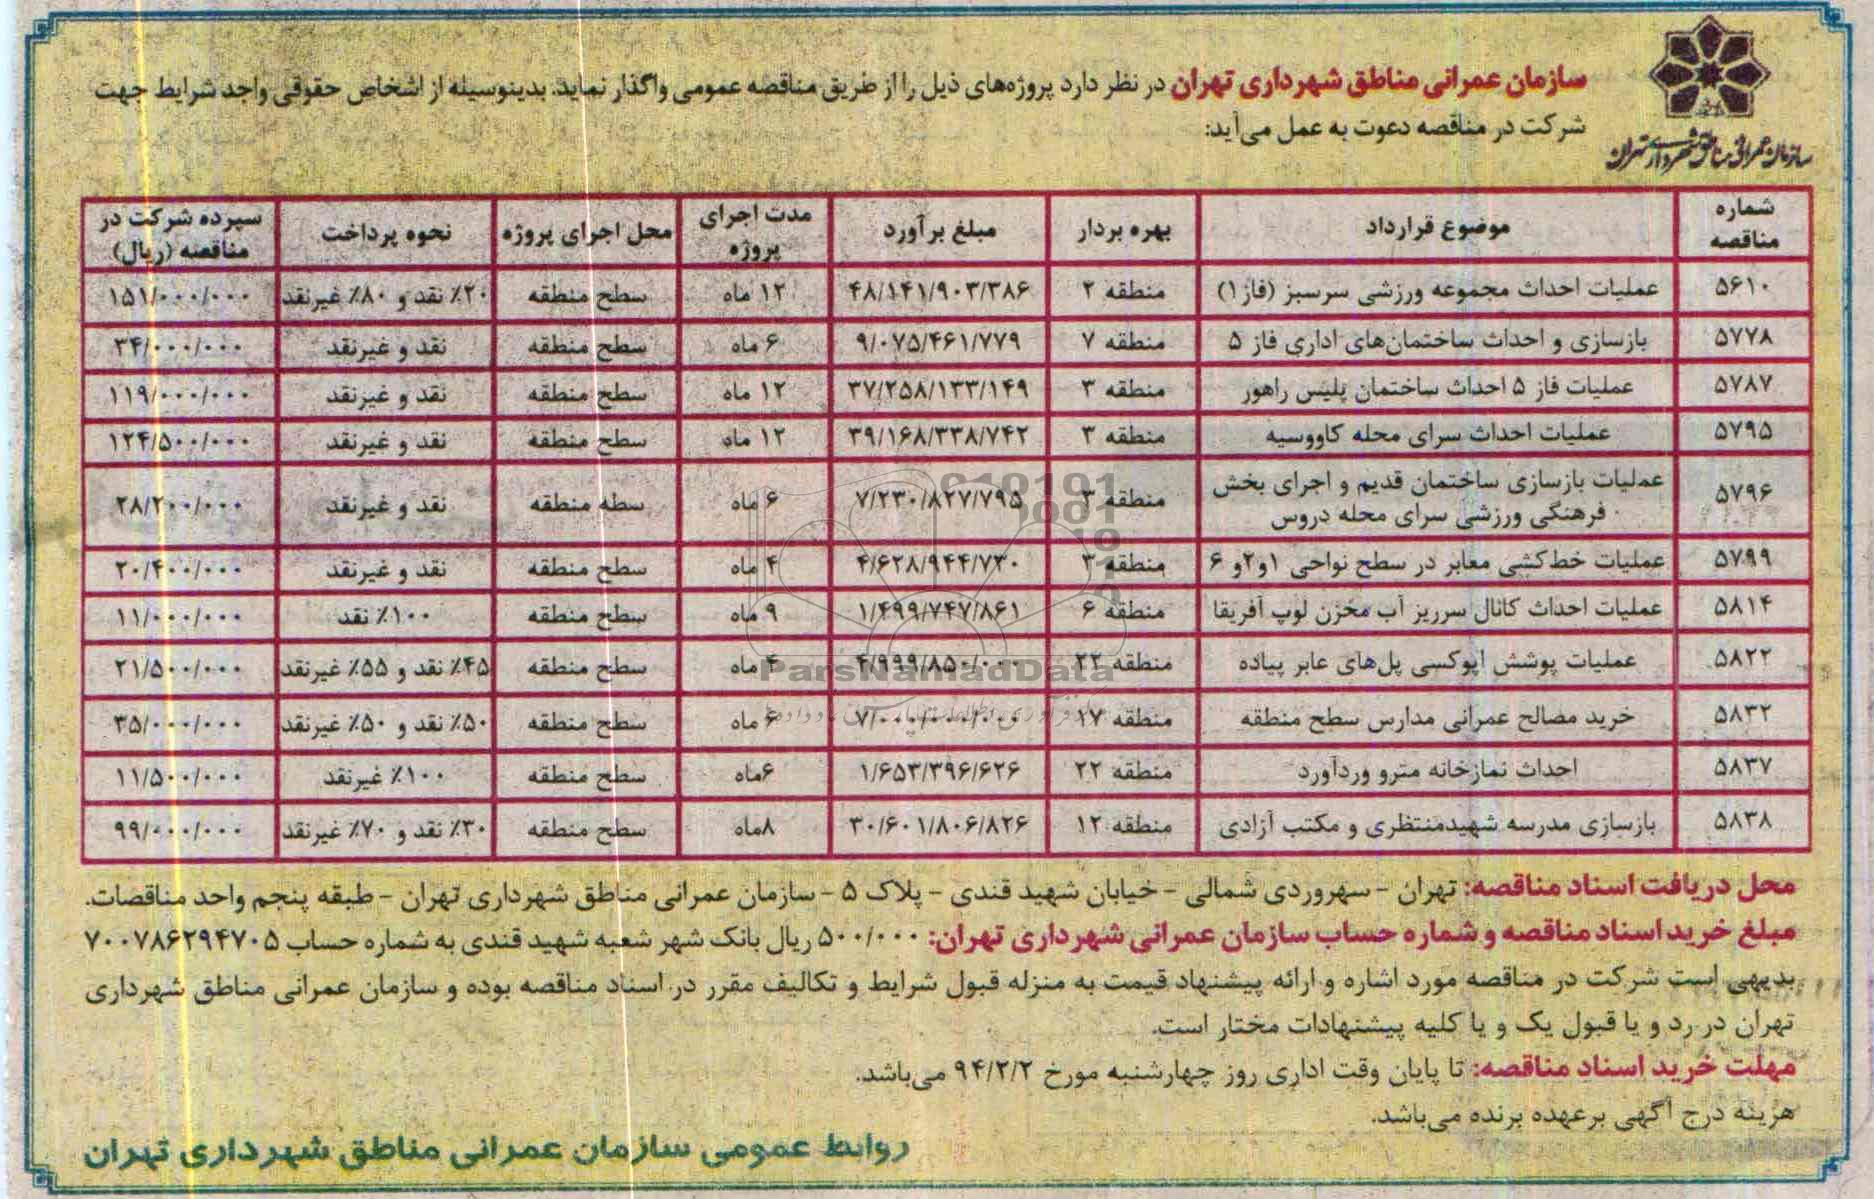 سازمان عمرانی مناطق شهرداری تهران
سازمان عمرانی مناطق شهرداری تهران در نظر دارد پروژه‌های ذیل را از طریق مناقصه عمومی واگذار نماید. بدینوسیله از اشخاص حقوقی واجد شرایط جهت
شرکت در مناقصه دعوت به عمل می‌آید:
شماره مناقصه | موضوع قرارداد | بهره بردار | مبلغ برآورد | مدت اجرای پروژه | محل اجرای پروژه | نحوه پرداخت | سپرده شرکت در مناقصه (ریال)
۵۶۱۰ | عملیات احداث مجموعه ورزشی سرسبز (فاز۱) | منطقه ۲ | ۴۸/۱۴۱/۹۰۳/۳۸۶ | ۱۲ ماه | سطح منطقه | ۲۰٪ نقد و ۸۰٪ غیرنقد | ۱۵۱/۰۰۰/۰۰۰
۵۷۷۸ | بازسازی و احداث ساختمان‌های اداری فاز ۵ | منطقه ۷ | ۹/۰۷۵/۴۶۱/۷۷۹ | ۶ ماه | سطح منطقه | نقد و غیرنقد | ۳۴/۰۰۰/۰۰۰
۵۷۸۷ | عملیات فاز ۵ احداث ساختمان پلیس راهور | منطقه ۳ | ۳۷/۲۵۸/۱۳۳/۱۴۹ | ۱۲ ماه | سطح منطقه | نقد و غیرنقد | ۱۱۹/۰۰۰/۰۰۰
۵۷۹۵ | عملیات احداث سرای محله کاووسیه | منطقه ۳ | ۳۹/۱۶۸/۳۳۸/۷۴۲ | ۱۲ ماه | سطح منطقه | نقد و غیرنقد | ۱۲۴/۵۰۰/۰۰۰
۵۷۹۶ | عملیات بازسازی ساختمان قدیم و اجرای بخش فرهنگی ورزشی سرای محله دروس | منطقه ۳ | ۷/۲۳۰/۸۲۷/۷۹۵ | ۶ ماه | سطه منطقه | نقد و غیرنقد | ۲۸/۲۰۰/۰۰۰
۵۷۹۹ | عملیات خط‌کشی معابر در سطح نواحی ۱و۲و ۶ | منطقه ۳ | ۴/۶۲۸/۹۴۴/۷۳۰ | ۴ ماه | سطح منطقه | نقد و غیرنقد | ۲۰/۴۰۰/۰۰۰
۵۸۱۴ | عملیات احداث کانال سرریز آب مخزن لوپ آفریقا | منطقه ۶ | ۱/۴۹۹/۷۴۷/۸۶۱ | ۹ ماه | سطح منطقه | ۱۰۰٪ نقد | ۱۱/۰۰۰/۰۰۰
۵۸۲۲ | عملیات پوشش اپوکسی پل‌های عابر پیاده | منطقه ۲۲ | ۴/۹۹۹/۸۵۰/۰۰۰ | ۴ ماه | سطح منطقه | ۴۵٪ نقد و ۵۵٪ غیرنقد | ۲۱/۵۰۰/۰۰۰
۵۸۳۲ | خرید مصالح عمرانی مدارس سطح منطقه | منطقه ۱۷ | ۷/۰۰۰/۰۰۰/۰۰۰ | ۶ ماه | سطح منطقه | ۵۰٪ نقد و ۵۰٪ غیرنقد | ۳۵/۰۰۰/۰۰۰
۵۸۳۷ | احداث نمازخانه مترو وردآورد | منطقه ۲۲ | ۱/۶۵۳/۳۹۶/۶۲۶ | ۶ماه | سطح منطقه | ۱۰۰٪ غیرنقد | ۱۱/۵۰۰/۰۰۰
۵۸۳۸ | بازسازی مدرسه شهیدمنتظری و مکتب آزادی | منطقه ۱۲ | ۳۰/۶۰۱/۸۰۶/۸۲۶ | ۸ماه | سطح منطقه | ۳۰٪ نقد و ۷۰٪ غیرنقد | ۹۹/۰۰۰/۰۰۰
ParsNamadData
محل دریافت اسناد مناقصه: تهران - سهروردی شمالی - خیابان شهید قندی - پلاک ۵ - سازمان عمرانی مناطق شهرداری تهران - طبقه پنجم واحد مناقصات.
مبلغ خرید اسناد مناقصه و شماره حساب سازمان عمرانی شهرداری تهران: ۵۰۰/۰۰۰ ریال بانک شهر شعبه شهید قندی به شماره حساب ۷۰۰۷۸۶۲۹۴۷۰۵
بدیهی است شرکت در مناقصه مورد اشاره و ارائه پیشنهاد قیمت به منزله قبول شرایط و تکالیف مقرر در اسناد مناقصه بوده و سازمان عمرانی مناطق شهرداری
تهران در رد و یا قبول یک و یا کلیه پیشنهادات مختار است.
مهلت خرید اسناد مناقصه: تا پایان وقت اداری روز چهارشنبه مورخ ۹۴/۲/۲ می‌باشد.
هزینه درج آگهی برعهده برنده می‌باشد.
روابط عمومی سازمان عمرانی مناطق شهرداری تهران